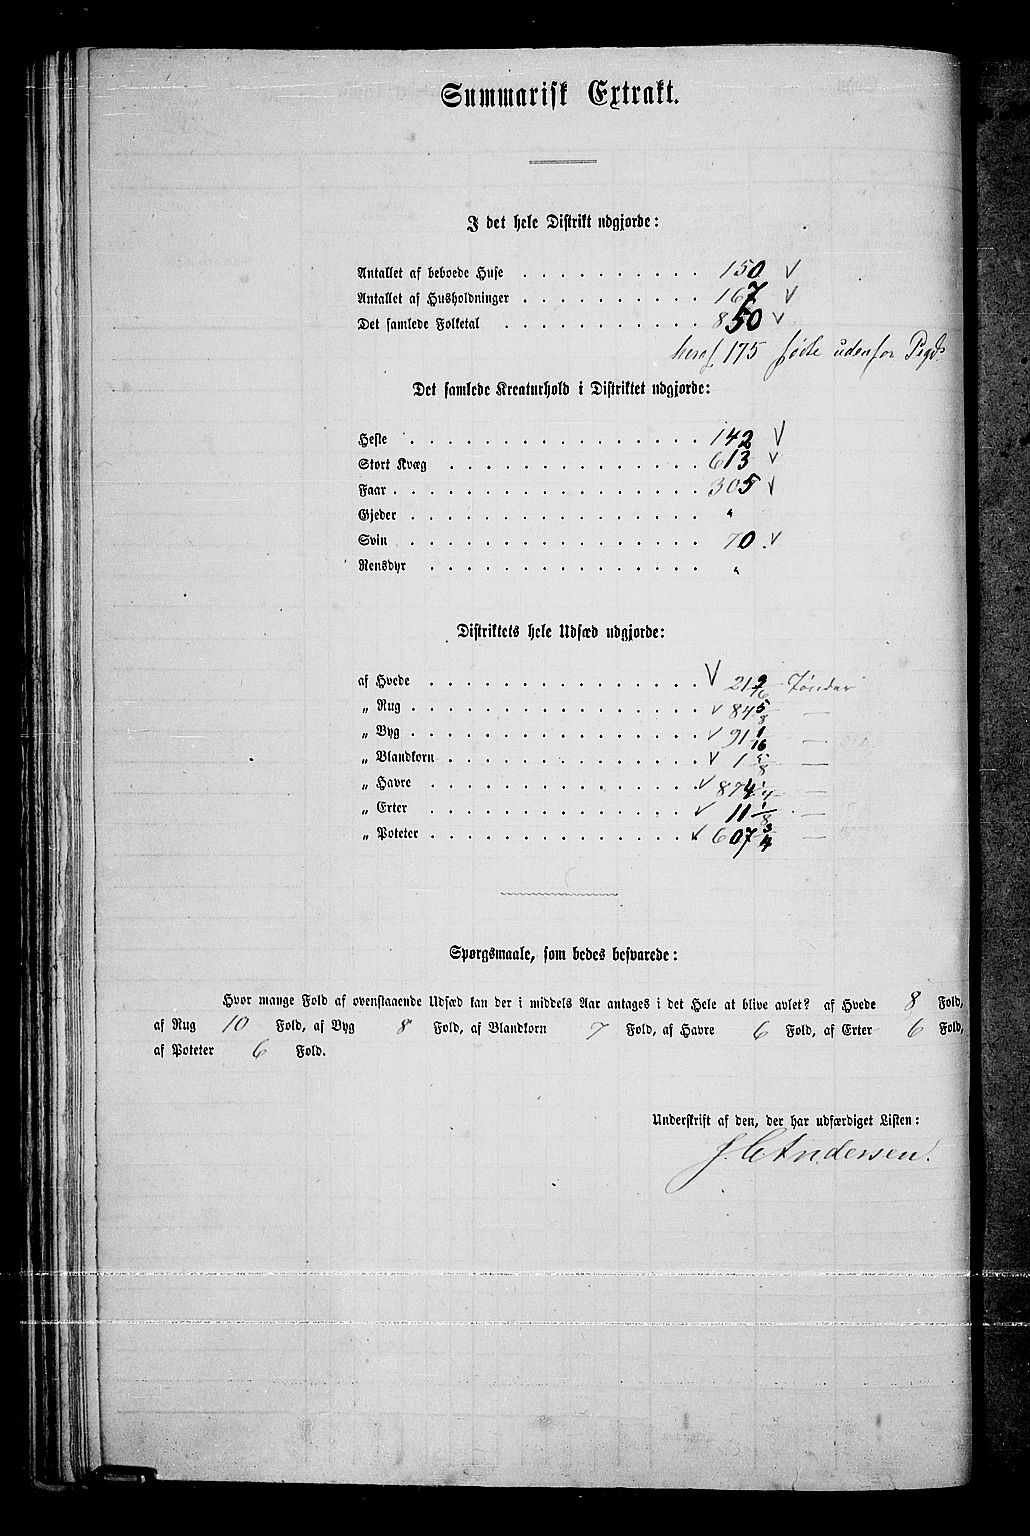 Summarisk Extrakt.
I det hele Distrikt udgjorde:
Antallet af beboede Huse . . . . . . . . 150 √
Antallet af Husholdninger . . . . . . . . 167 √
Det samlede Folketal . . . . . . . . . 850 √
heraf 175 fødte udenfor Pigds
Det samlede Kreaturhold i Distriktet udgjorde:
Heste . . . . . . . . . . . . . 142 √
Stort Kvæg . . . . . . . . . . . 613 √
Faar . . . . . . . . . . . . . . 305 √
Gjeder . . . . . . . . . . . . . "
Svin . . . . . . . . . . . . . 70 √
Rensdyr . . . . . . . . . . . . "
Distriktets hele Udsæd udgjorde:
af Hvede . . . . . . . . . . . . √ 21 Tønder
„ Rug . . . . . . . . . . . . . √ 84 5/8 —
„ Byg . . . . . . . . . . . . . √ 91 1/16 —
„ Blandkorn . . . . . . . . . . . √ 1 5/8 —
„ Havre . . . . . . . . . . . . √ 874 1/4 —
„ Erter . . . . . . . . . . . . √ 11 1/8 —
„ Poteter . . . . . . . . . . . √ 607 3/4 —
Spørgsmaale, som bedes besvarede:
Hvor mange Fold af ovenstaaende Udsæd kan der i middels Aar antages i det Hele at blive avlet? af Hvede 8 Fold,
af Rug 10 Fold, af Byg 8 Fold, af Blandkorn 7 Fold, af Havre 6 Fold, af Erter 6 Fold,
af Poteter 6 Fold.
Underskrift af den, der har udfærdiget Listen:
J. C. Andersen.